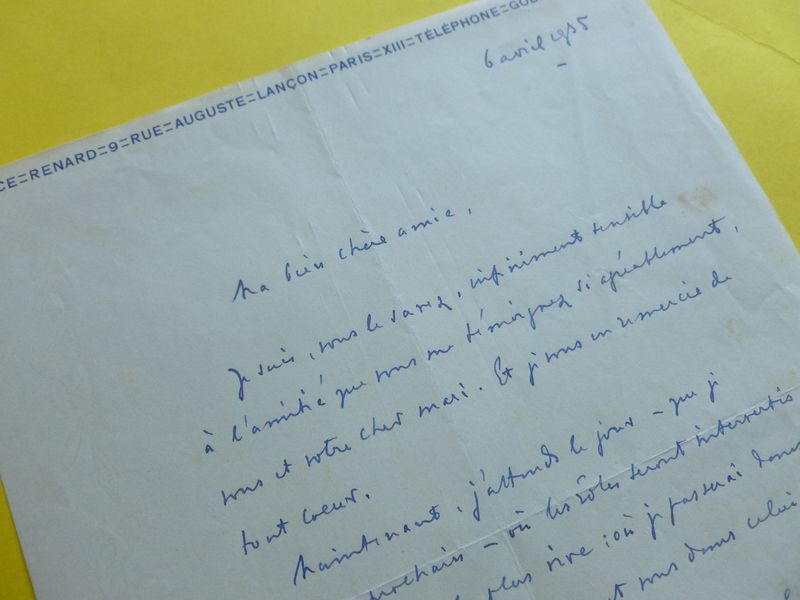 CE=RENARD=9=RUE=AUGUSTE=LANÇON=PARIS=XIII=TÉLÉPHONE=GOB
6 avril 1935
Ma bien chère amie,
Je suis, vous le savez, infiniment sensible
à l'amitié que vous me témoignez si agréablement,
vous et votre cher mari. Et je vous en remercie de
tout coeur.
Maintenant, j'attends le jour – que je
prochain – où les rôles seront intervertis
plus vive : où je passerai dans
vous dans celui